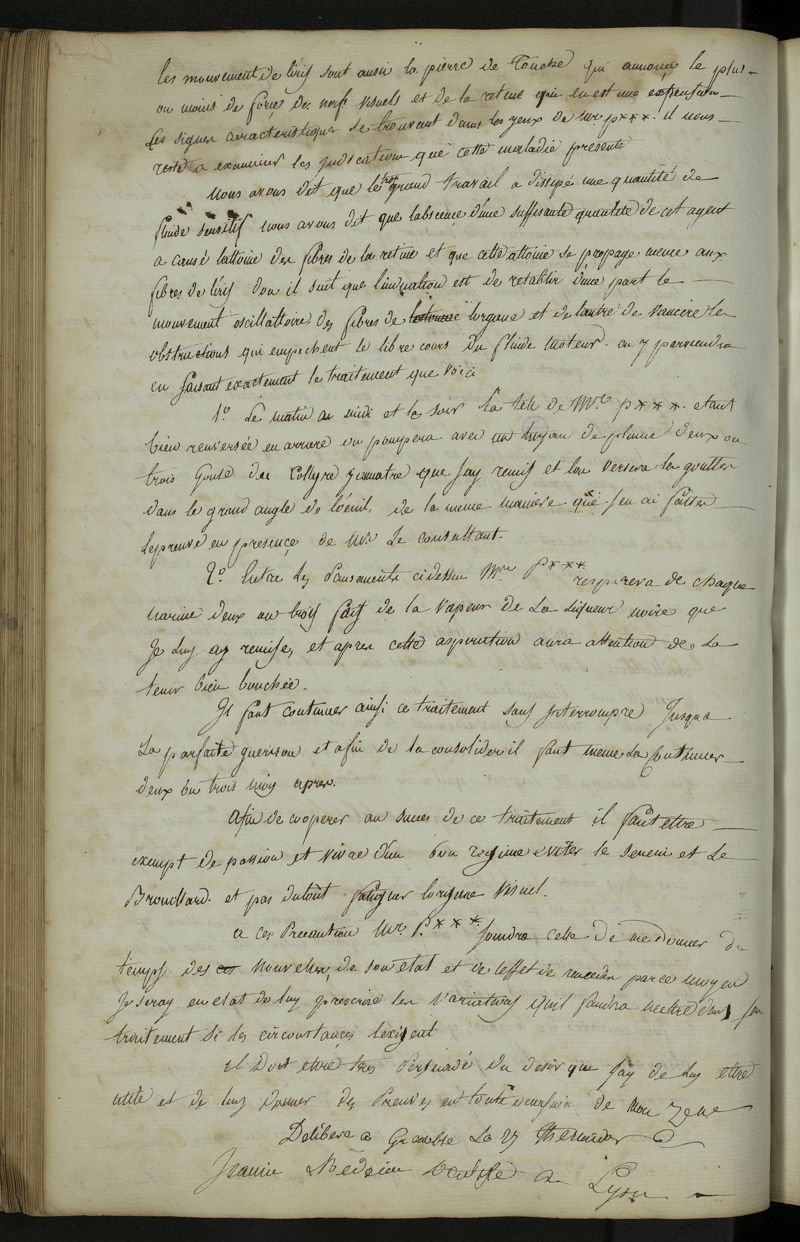 les mouvement de liris sont aussi la pierre de Touche qui annonce le plus
ou moins de force des nerfs visuels et de la retine qui en est une expension
Les signes caracteristiques se trouvent dans les yeux de Mr p***. il nous
reste a examiner les indication que cette maladie présente
Nous avons dit que le trop grand travail a dissipé une quantité de
fluide sensitif nous avons dit que labscence d'une suffisante quantete de cet agent
a causé lattonie des fibres de la retine et que cette attonie se propage meme aux
fibres de liris dou il suit que lindication est de retablir d'une part le
mouvement oscillattoire des fibres de lorgane et de lautre de vaincre les
obstructions qui empechent le libre cours du fluide moteur. on y parviendra
en faisant exactement le traitement que voici
1.o Le matin a midi et le soir la tete de Mr. p***. etant
bien renversée en arriere on pompera avec un tuyau de plume deux ou
trois goute du Collyre que jay remis et lon versera les gouttes
dans le grand angle de l'oeuil de la meme maniere que j'en ai faitte
lepreuve en presence de Mr. Le consultant.
2.o Entre les Pansements cidessus Mr. P*** respirera de chaque
narine deux ou trois fois de la vapeur de La Liqueur noire que
Je luy ay remise, et apres cette aspiration aura attention de La
tenir bien bouchée.
Il faut continuer ainsi ce traitement sans Interrompre Jusqua
La parfaite guerison et afin de la consolider il faut meme La Continuer
deux ou trois mois apres.
Afin de cooperer au succes de ce traitement il faut ettre
exempt de passion et vivre d'un bon regime eviter le serein et Le
Brouillard. et pas dutout fatiguer lorgane visuel.
a ces Precaution Mr. P*** joindra celle de me donner de
temps des nouvelles, de son etat et de leffet de remedes par ce moyen
Je seray en etat de luy prescrire les variations quil faudra mettre dans son
traitement si les circonstances lexigent
il Doit ettre tres Persuadé du desir que jay de Luy ettre
utile et de luy donner des Preuves en toute de mon zele
Delibere a Grenoble La 27 thermidor
Janin Medecin oculiste a Lyon